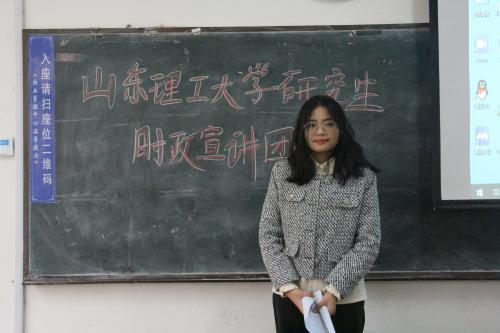 山东理工大学研究生
时政宣讲团
入座请扫座位二维码